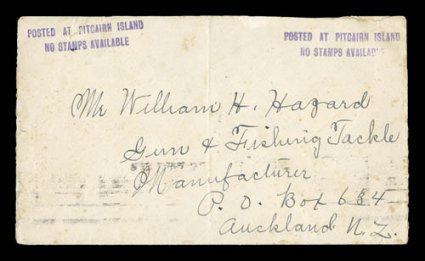 POSTED AT PITCAIRN ISLAND
NO STAMPS AVAILABLE
POSTED AT PITCAIRN ISLAND
NO STAMPS AVAILABLE
Mr William H. Hazard
Gun & Fishing Tackle
Manufacturer
P. O. Box 684
Auckland N. Z.